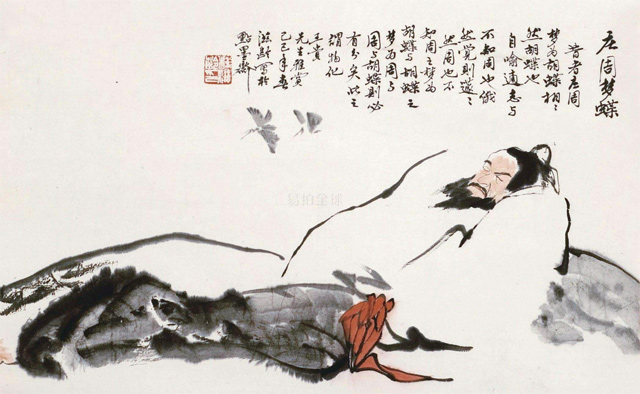 庄周梦蝶
昔者庄周
梦为胡蝶栩〻
然胡蝶也
自喻適志与
不知周也俄
然觉则蘧〻
然周也不
知周之梦为
胡蝶与胡蝶之
梦为周与
周与胡蝶则必
有分矣此之
谓物化
玉贵
先生雅赏
己巳年春
写於
點墨斋
易拍全球